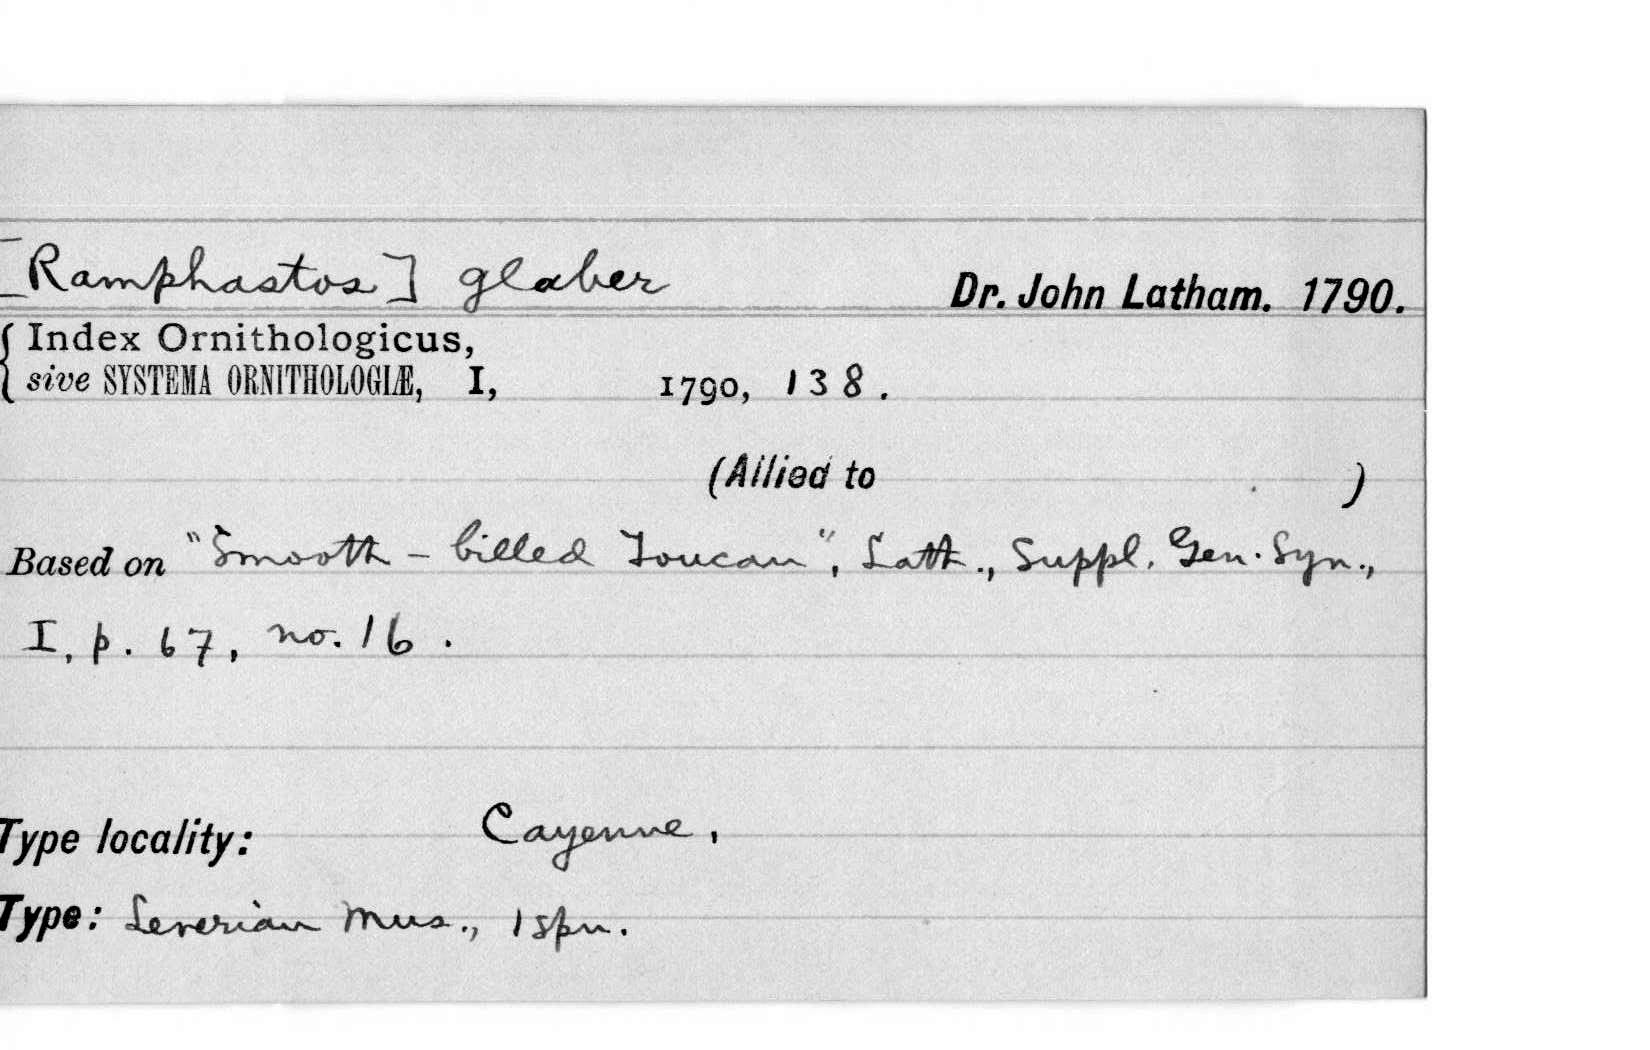 [Ramphastos] glaber Dr. John Latham. 1790.
Index Ornithologicus,
sive SYSTEMA ORNITHOLOGIÆ, I, 1790, 138.
(Allied to )
Based on "Smooth-billed Toucan", Lath., Suppl. Gen. Syn.,
I, p. 67, no. 16.
Type locality: Cayenne,
Type: Leverian Mus., 1 spn.